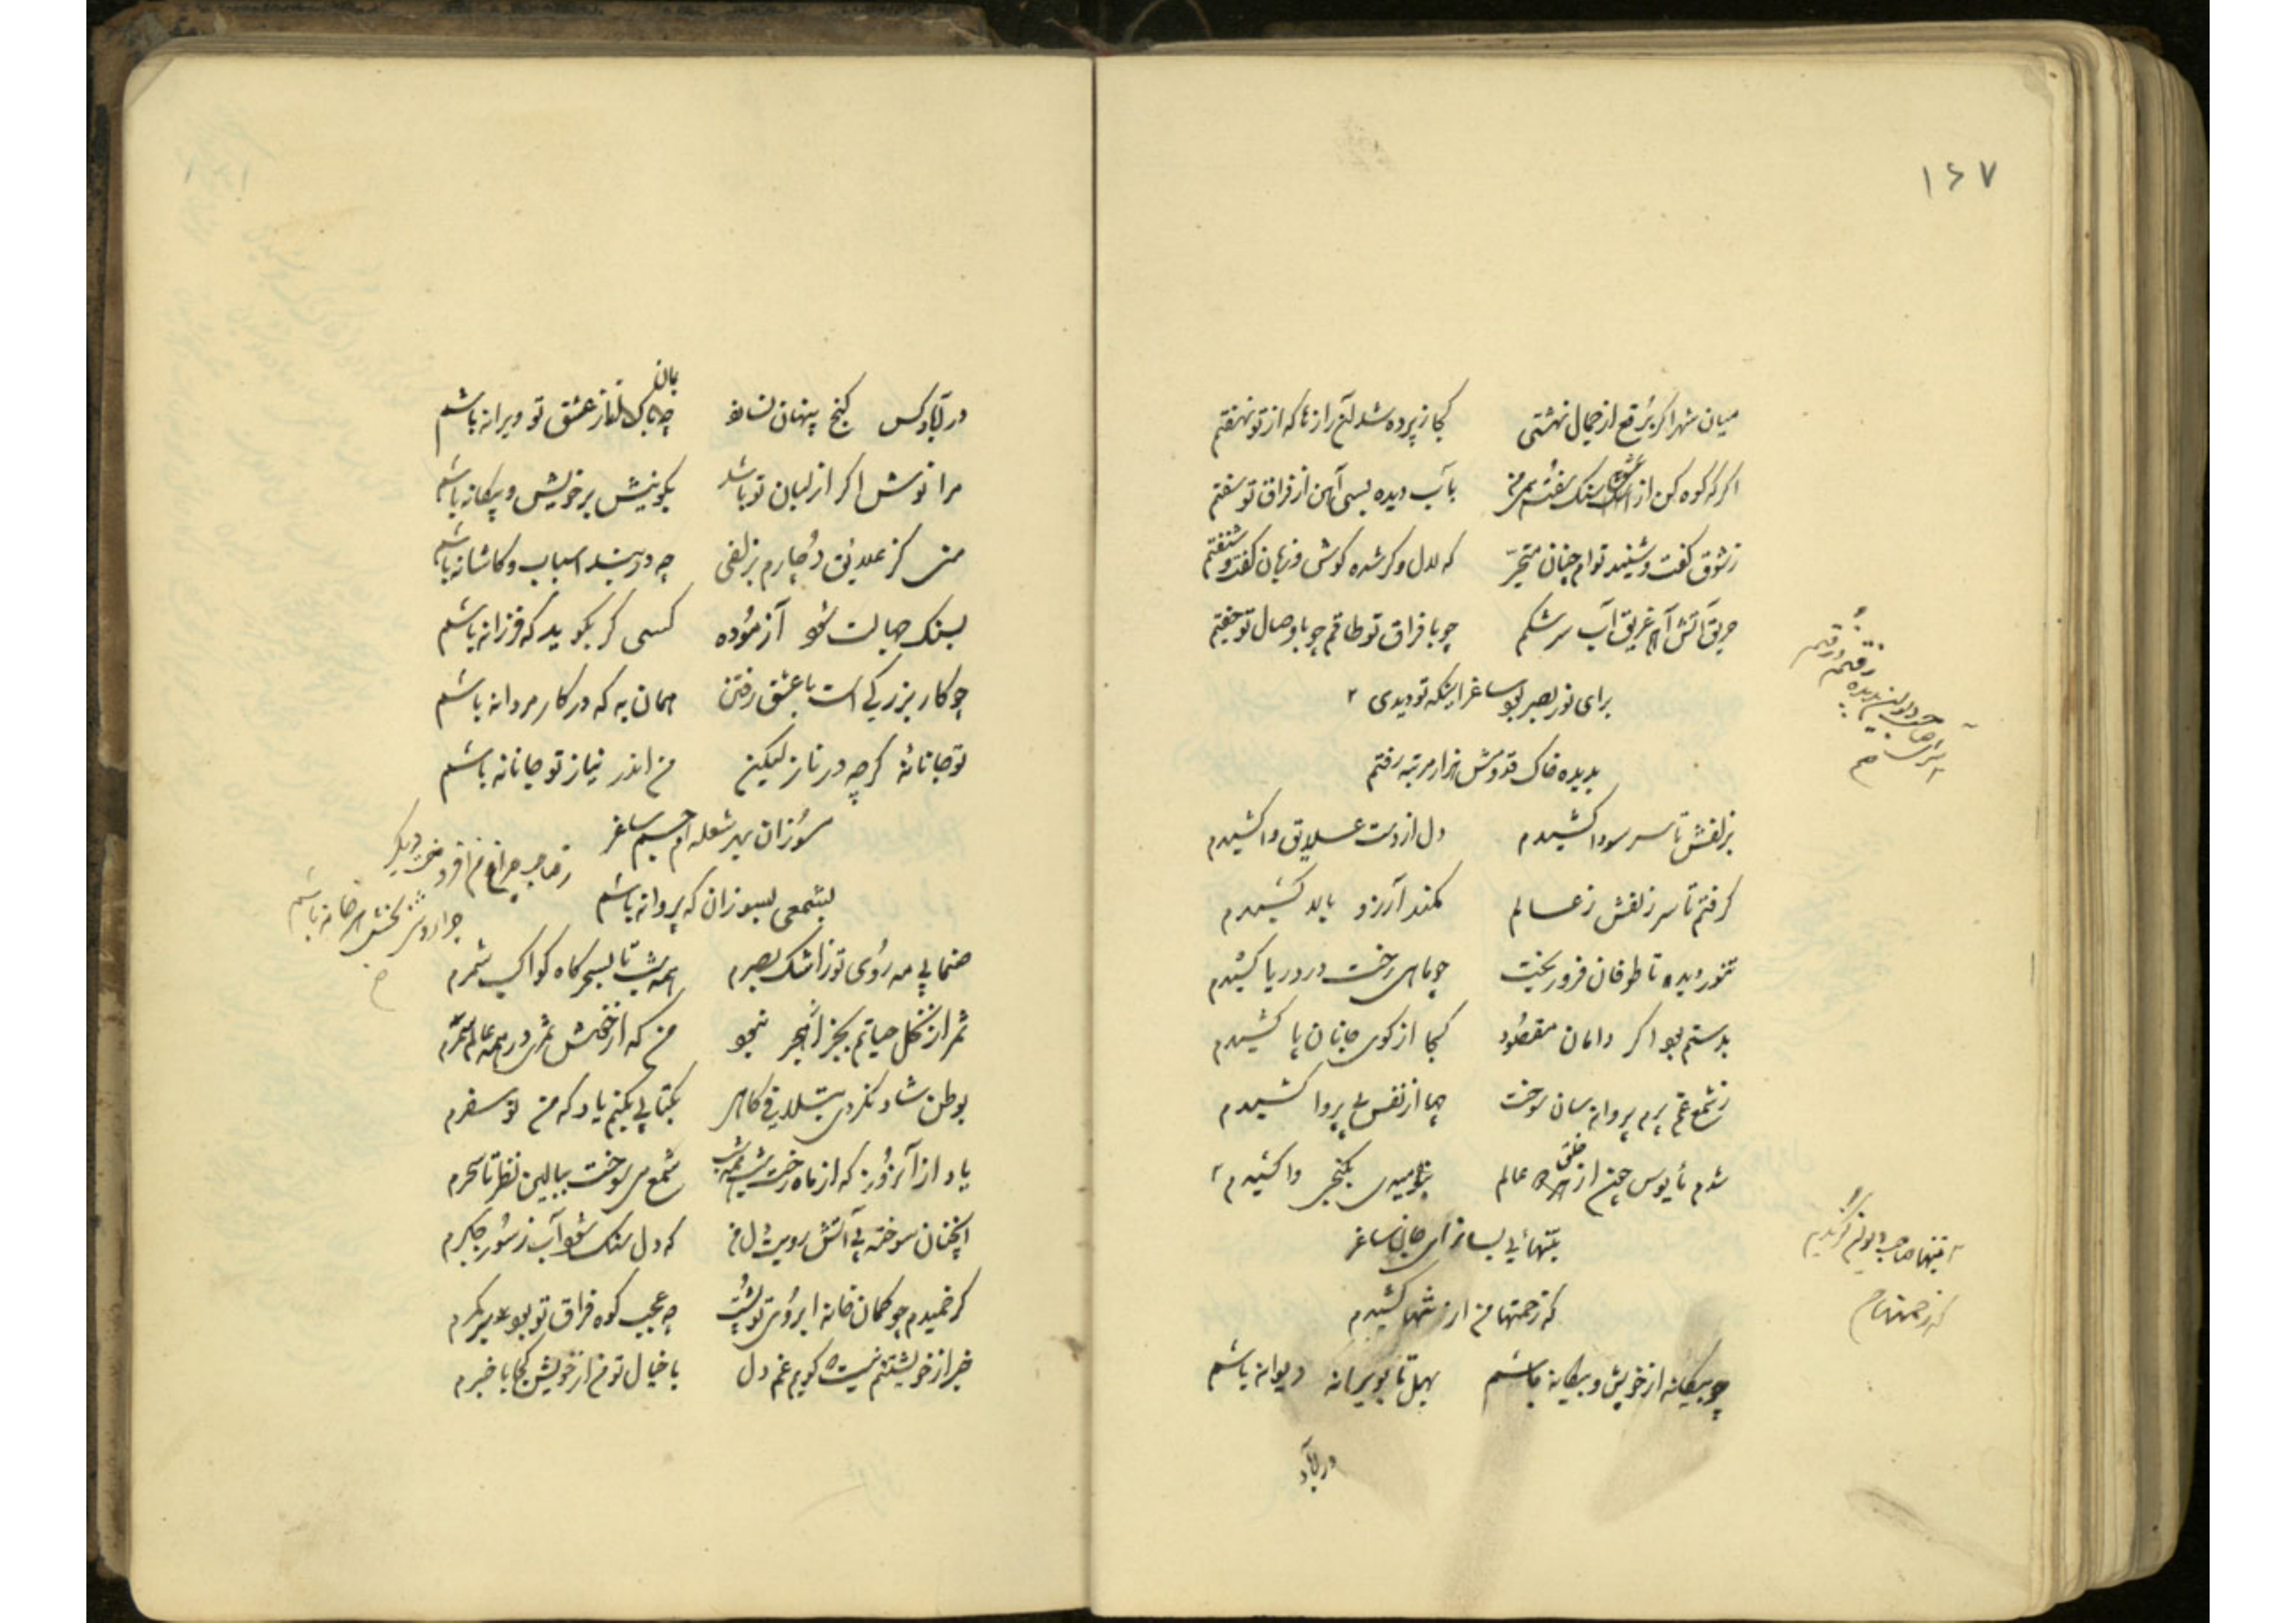 ۱۶۷
میان شهر اگر برقع از جمال نهشتی کجا ز پرده شد آن رازها که از تو نهفتم
اگر که کوه کن از سنک سفت بآب دیده بسی آهن از فراق تو سفتم
ز شوق کفت و شنید توام چنان متحیر که لال و کر شده کوش و زبان کفت و شنفتم
حریق آتش آه غریق آب سرشکم چو با فراق تو طاقم چو با وصال تو جفتم
برای نور بصر بود ساغر اینکه تو دیدی
بدیده خاک قدومش هزار مرتبه رفتم
بزلفش تا سر سودا کشیدم دل از دست علایق وا کشیدم
کرفتم تا سر زلفش ز عالم کمند آرزو کشیدم
تنور دیده تا طوفان فرو ریخت چو ماهی رخت در دریا کشیدم
بدستم بود اکر دامان مقصود کجا از کوی جانان پا کشیدم
ز شمع غم پرم پروانه سان سوخت چها از نفس بی پروا کشیدم
شدم مأیوس چون از خلق عالم بکنجی وا کشیدم
بتنهائی بساز ای جان ساغر
که زحمتها من از کشیدم
چو بیکانه از خویش و بیکانه باشم بهل تا بویرانه دیوانه باشم
در آباد
رفتم و رفتم
تنها صاحب دیوان
که زحمتها
در آباد کس کنج پنهان نسازد چه باک از ز عشق تو ویرانه باشم
مرا نوش اکر از لبان تو باشد بکو نیش بر خویش و بیکانه باشم
منی کز علایق دچارم بزلفی چه در بند اسباب و کاشانه باشم
بسنک جهالت شود آزموده کسی کر بکوید که فرزانه باشم
چو کار بزرکی است با عشق رفتن همان به که در کار مردانه باشم
تو جانانهٔ کرچه در ناز لیکن من اندر نیاز تو جانانه باشم
سوزان بهر شعله ام جسم ساغر
بشمعی بسوزان که پروانه باشم
صنما بی مه روی تو ز اشک بصرم همه شب تا بسحرکاه کواکب شمرم
ثمر از نخل حیاتم بجز از هجر نبود من که از عشق ثمری در همه عالم سمرم
بوطن شاد نکردی بسلامی کاهی بکتابی بکنم یاد که من نو سفرم
یاد از آنروز که از ماه رخت شب همه شب شمع می سوخت ببالین نظر تا سحرم
آنچنان سوخته بی آتش رویت دل من که دل سنک شود آب ز سوز جکرم
کر خمیدم چو کمان خانه ابروی تو پشت چه عجب کوه فراق تو بود بر کمرم
خبر از خویشتنم نیست که کویم غم دل با خیال تو من از خویش کجا با خبرم